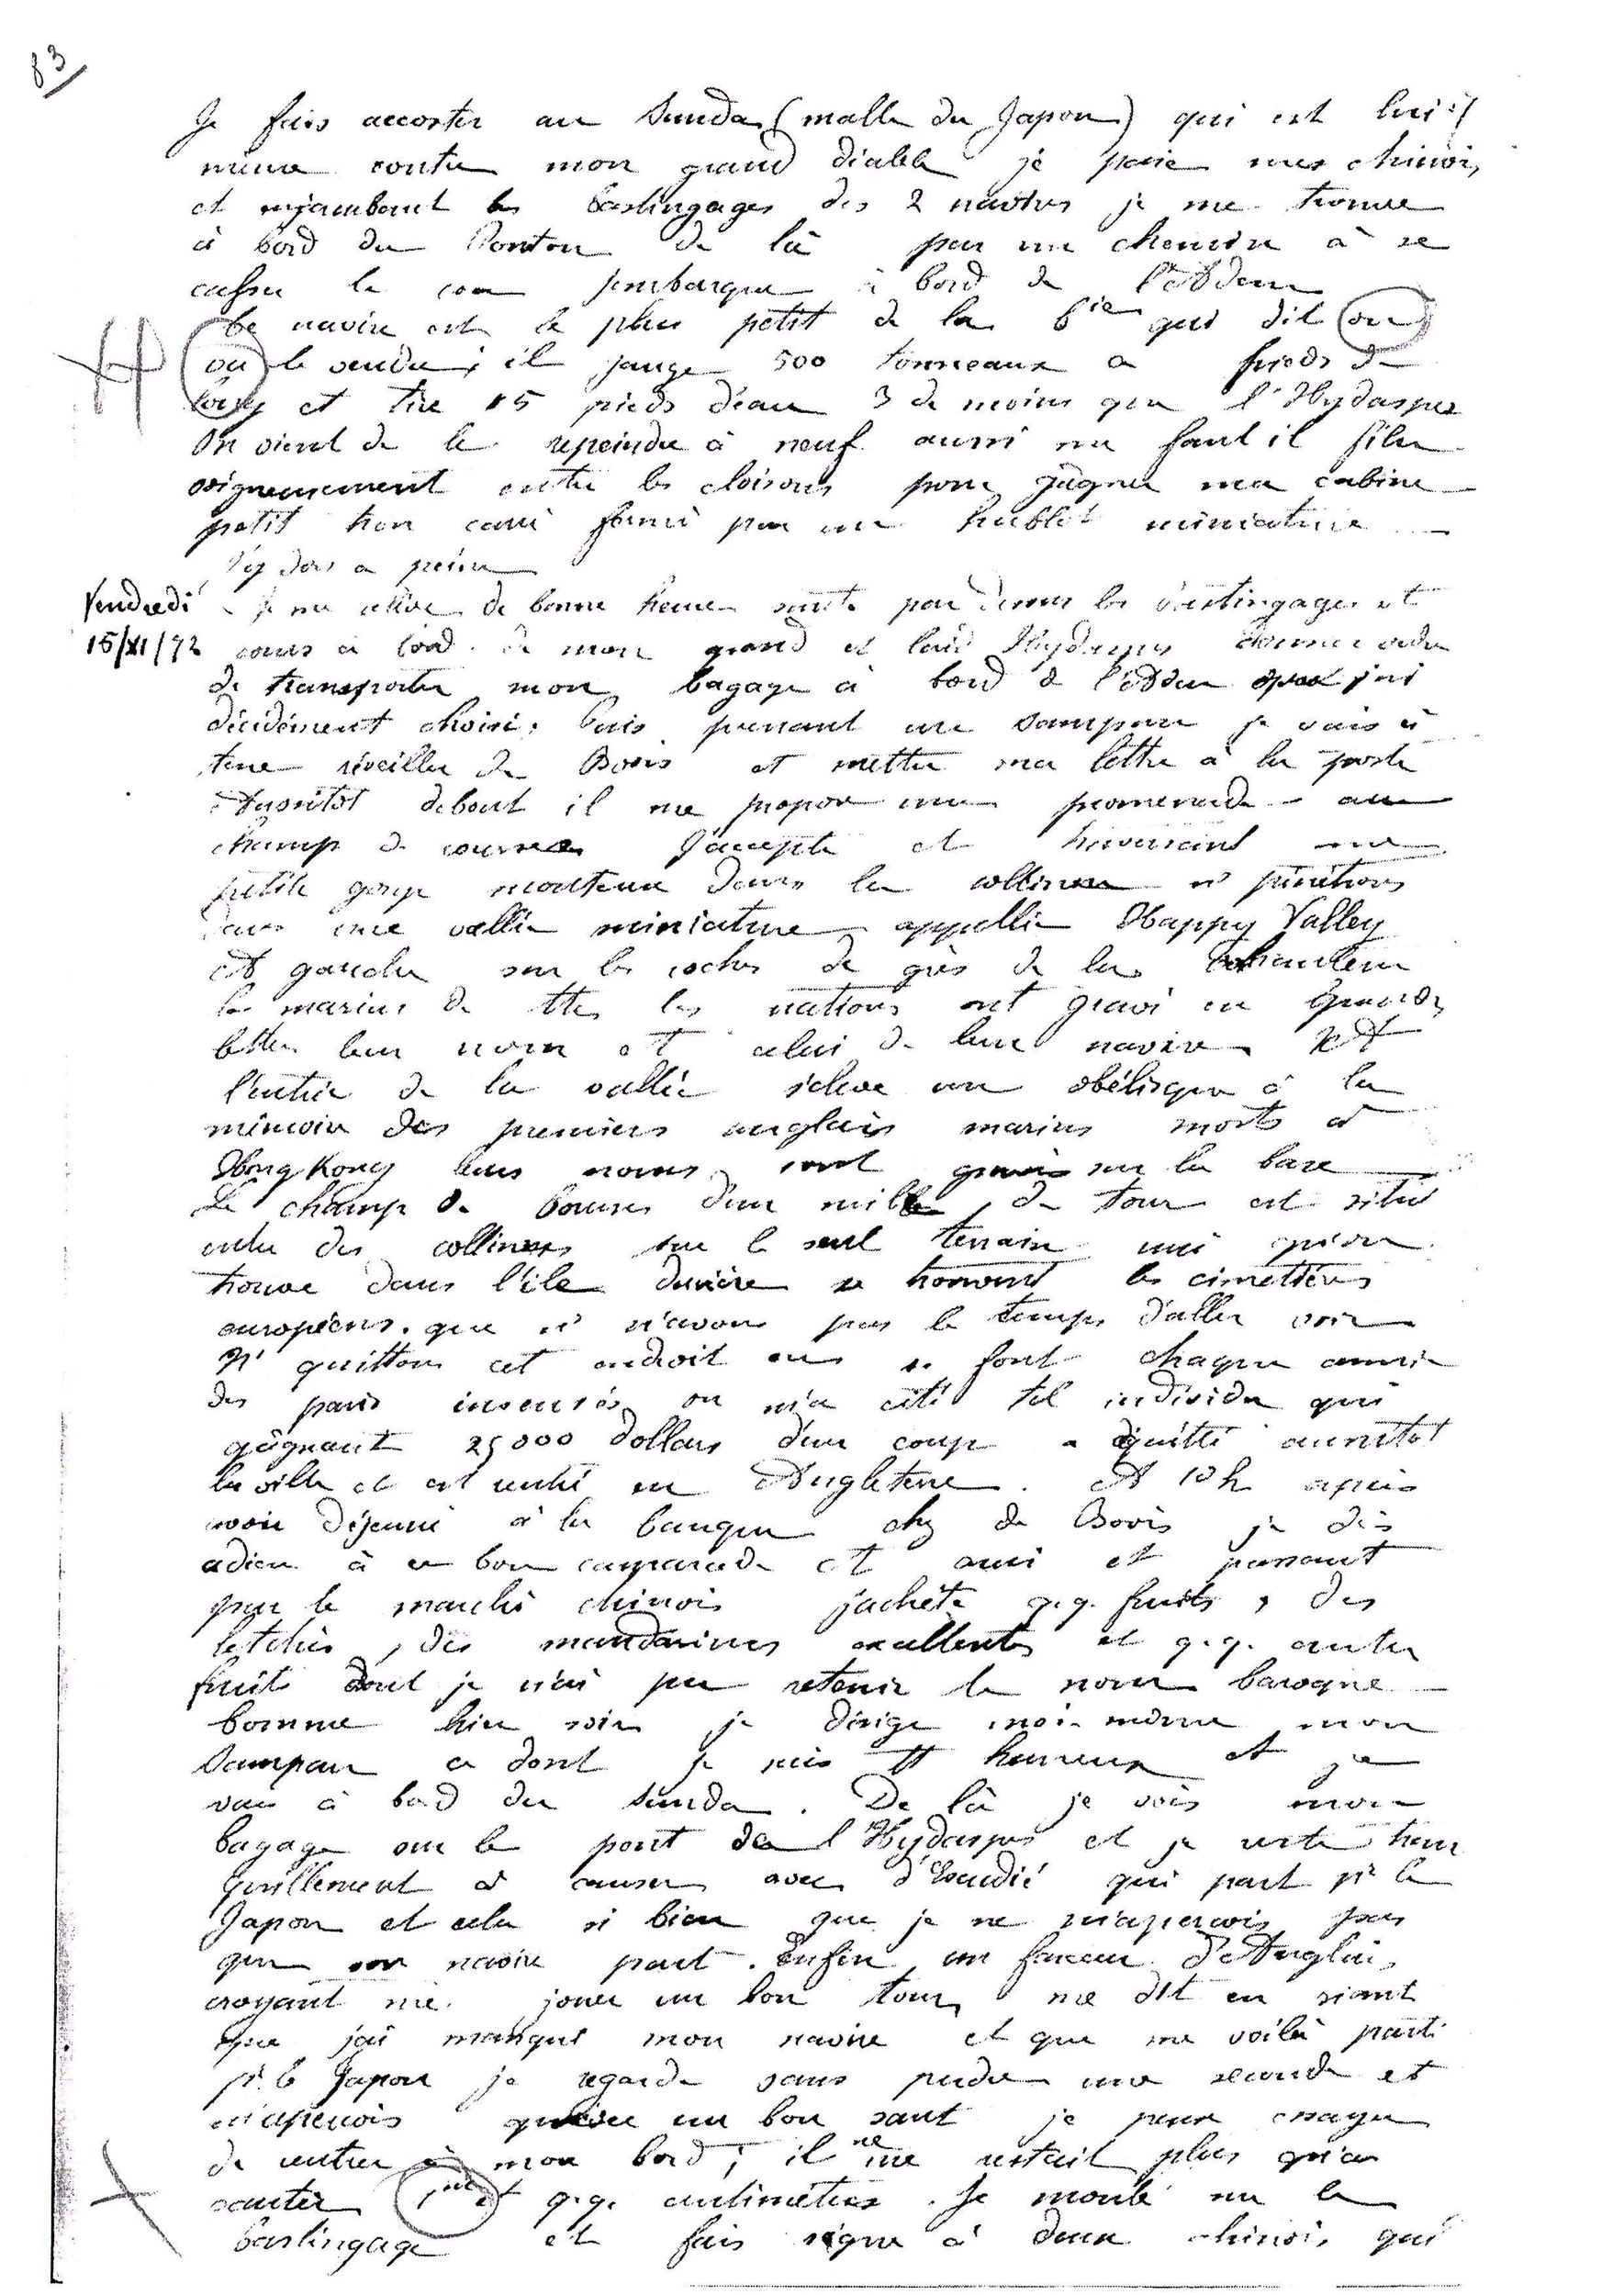 83
Je fais accoster au Sunda (malle du Japon) qui est lui
même contre mon grand diable je paie mes chinois
et enjambant les bastingages des 2 navires je me trouve
à bord du Ponton de là par un chemin à se
casser le cou j'embarque à bord de l'Aden
Ce navire est le plus petit de la Cie qui dit on
ou le vendu ; il jauge 500 tonneaux a pieds de
long et tire 15 pieds d'eau 3 de moins que l'Hydaspes
On vient de le repeindre à neuf aussi me faut il filer
soigneusement entre les cloisons pour gagner ma cabine
petit trou carré fermé par un hublot miniature
J'y dors a peine
Vendredi Je me lève de bonne heure saute par dessus les bastingages et
15/XI/72 cours à bord de mon grand et laid Hydaspes donner ordre
de transporter mon bagage à bord de l'Aden que j'ai
décidément choisi. Puis prenant un sampan je vais à
terre réveiller de Bovis et mettre ma lettre à la poste
Aussitôt debout il me propose une promenade au
champ de courses J'accepte et traversant une
petite gorge montueuse dans la colline ns pénétrons
dans une vallée miniature appellée Happy Valley
A gauche sur les roches de grès de la hauteur
les marins de ttes les nations ont gravé en grandes
lettres leur nom et celui de leur navire A
l'entrée de la vallée s'élève un obélisque à la
mémoire des premiers anglais marins morts à
Hong Kong leurs noms sont gravés sur la base
Le champ de courses d'un mille de tour est situé
entre des collines sur le seul terrain uni qu'on
trouve dans l'île derrière se trouvent les cimetières
européens. que ns n'avons pas le temps d'aller voir
Ns quittons cet endroit ou se font chaque année
des paris insensés on m'a cité tel individu qui
gagnant 25 000 dollars d'un coup a quitté aussitôt
la ville et est rentré en Angleterre. A 10 h après
avoir déjeuné à la banque chez de Bovis je dis
adieu à ce bon camarade et ami et passant
par le marché chinois j'achète q.q. fruits, des
letchis, des mandarines excellentes et q.q. autre
fruits dont je n'ai pu retenir le nom baroque
Comme hier soir je dirige moi même mon
Sampan ce dont je suis tt heureux et je
vais à bord du Sunda. De là je vois mon
bagage sur le pont de l'Hydaspes et je reste tran
quillement à causer avec d'Escudié qui part pr le
Japon et cela si bien que je ne m'aperçois pas
que son navire part. Enfin un farceur d'Anglais,
croyant me jouer un bon tour me dit en riant
que j'ai manqué mon navire et que me voilà parti
pr le Japon je regarde sans perdre une seconde et
m'aperçois qu'avec un bon saut je peux essayer
de rentrer à mon bord ; il ne me restait plus qu'à
sauter q.q. centimètres. Je monte sur le
bastingage et fais signe à deux chinois qui